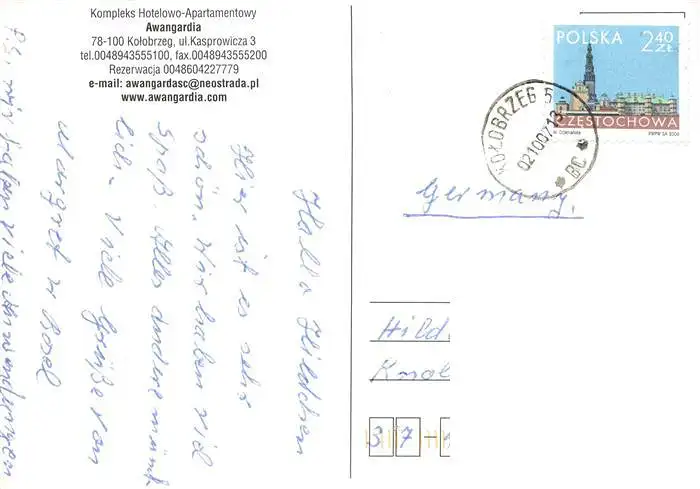 Kompleks Hotelowo-Apartamentowy
Awangardia
78-100 Kołobrzeg, ul.Kasprowicza 3
tel.0048943555100, fax.0048943555200
Rezerwacja 0048604227779
e-mail: awangardasc@neostrada.pl
www.awangardia.com
Hallo Hildchen
Hier ist es sehr
schön. Wir haben viel
Spaß. Alles andere münd-
lich. Viele Grüße von
Margret u
P.S. wir haben viele
POLSKA 2 40 ZŁ
CZĘSTOCHOWA
KOŁOBRZEG 5
021007.12
BC
Germany.
Hild
37-